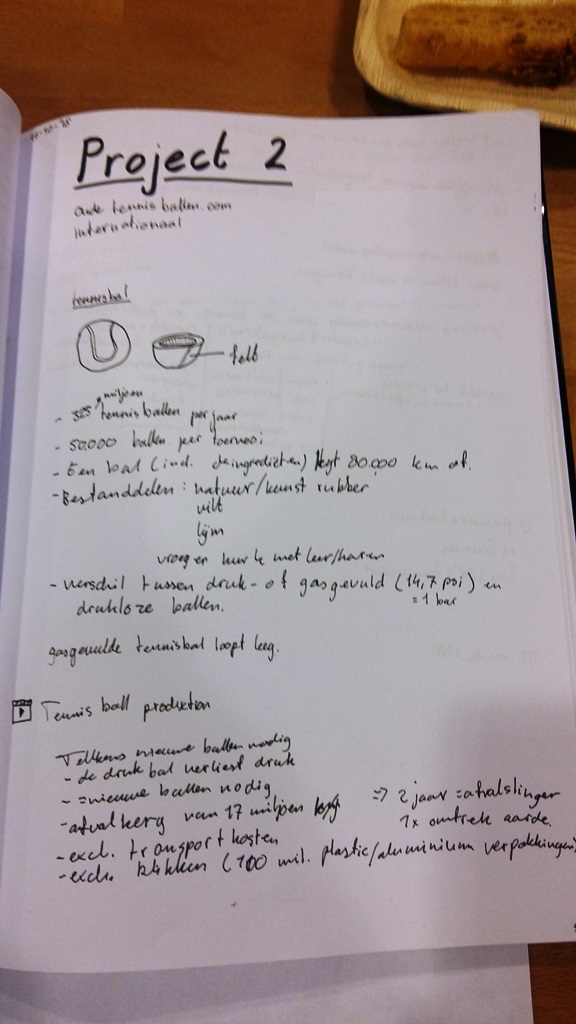 Project 2
oude tennisballen.com
Internationaal
tennisbal
felt
miljoen
- 325 tennisballen per jaar
- 50.000 ballen per toernooi
- Een bal (incl. de ingrediëten) legt 80.000 km af.
- Bestanddelen: natuur/kunst rubber
vilt
lijm
vroeger kurk met leer/haren
- verschil tussen druk- of gasgevuld (14,7 psi) en
= 1 bar
drukloze ballen.
gasgevulde tennisbal loopt leeg.
Tennis ball production
Telkens nieuwe ballen nodig
- de druk bal verliest druk
- = nieuwe ballen nodig
- afvalberg van 17 miljoen kg => 2 jaar = afvalslinger
1x omtrek aarde.
- excl. transportkosten
- excl. blikken (100 mil. plastic/aluminium verpakkingen)